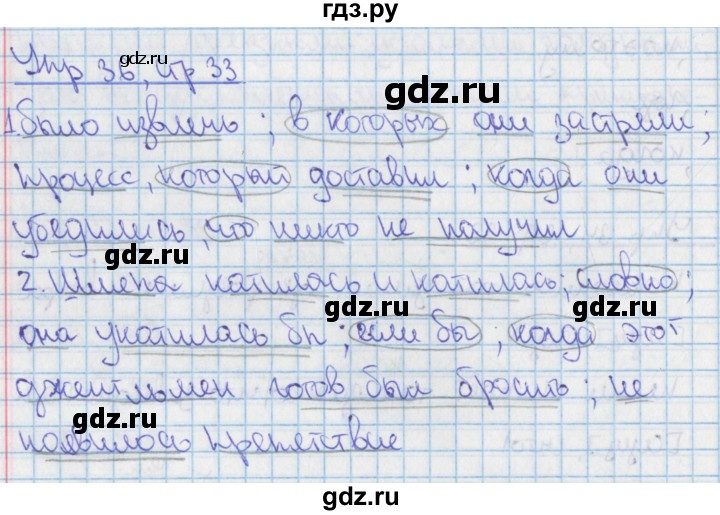 гдз.ру
Упр 36, стр 33
gdz.ru
gdz.ru
1.Было извлечь; в которых они застряли;
процесс, который доставил; когда они
убедились, что никто не получил
gdz.ru
2. Шляпа катилась и катилась; словно;
она укатилась бы; если бы; когда этот
джентльмен готов был бросить; не
gdz.ru
gdz.ru
появилось препятствие
gdz.ru
gdz.ru